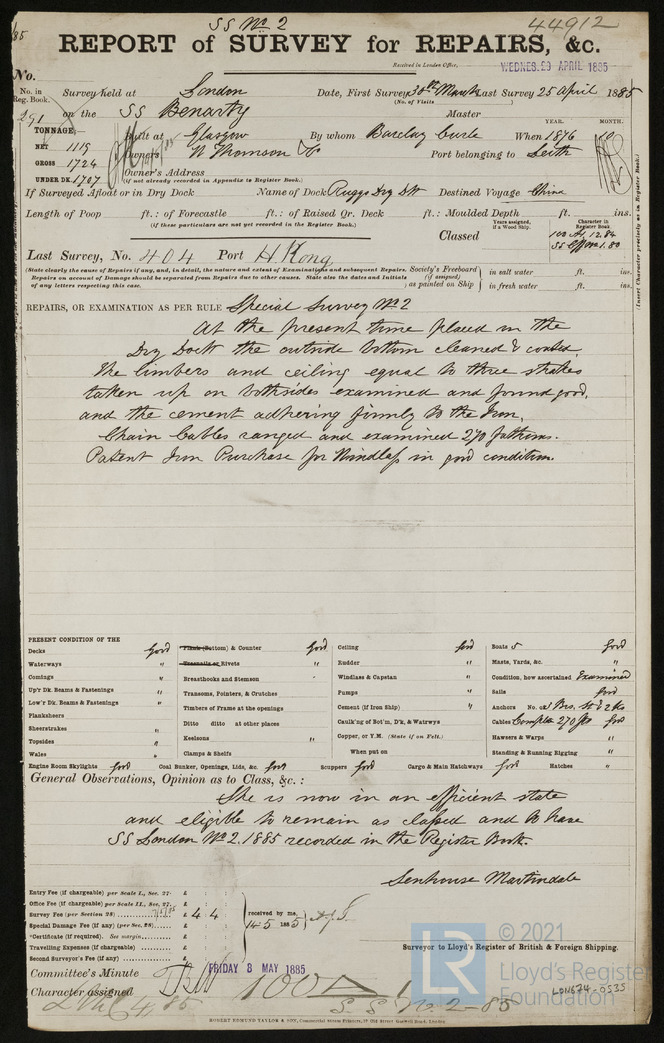 SS No 2
44912
85
REPORT of SURVEY for REPAIRS, &c.
Received in London Office,
WEDNES. 29 APRIL 1885
No.
No. in Reg. Book. Survey held at London Date, First Survey 30th March Last Survey 25 April 1885
(No. of Visits )
291 on the SS Benarty Master
TONNAGE,— YEAR. MONTH.
NET 1119 Built at Glasgow By whom Barclay Curle When 1876 10
GROSS 1724 Owners W Thomson & Co Port belonging to Leith
UNDER DK. 1707 Owner's Address
(if not already recorded in Appendix to Register Book.)
If Surveyed Afloat or in Dry Dock Name of Dock Ruggs Dry Dk Destined Voyage China
Length of Poop ft.: of Forecastle ft.: of Raised Qr. Deck ft.: Moulded Depth ft. ins.
(if these particulars are not yet recorded in the Register Book.)
Years assigned, if a Wood Ship. Character in Register Book.
Classed 100 A1, 12.84
Last Survey, No. 404 Port H. Kong
(State clearly the cause of Repairs if any, and, in detail, the nature and extent of Examinations and subsequent Repairs.
Repairs on account of Damage should be separated from Repairs due to other causes. State also the dates and Initials
of any letters respecting this case.
Society's Freeboard (if assigned) ; as painted on Ship
in salt water ft. ins.
in fresh water ft. ins.
(Insert Character precisely as in Register Book.)
REPAIRS, OR EXAMINATION AS PER RULE Special Survey No 2
At the present time placed in the
Dry Dock the outside bottom cleaned & coated.
The limbers and ceiling equal to three strakes
taken up on bothsides examined and found good,
and the cement adhering firmly to the Iron.
Chain Cables ranged and examined 270 fathoms.
Patent Iron Purchase for Windlass in good condition.
PRESENT CONDITION OF THE
Decks Good
Waterways "
Comings "
Up'r Dk. Beams & Fastenings "
Low'r Dk. Beams & Fastenings "
Planksheers
Sheerstrakes "
Topsides "
Wales "
Engine Room Skylights Good
Plank (Bottom) & Counter Good
Treenails or Rivets "
Breasthooks and Stemson
Transoms, Pointers, & Crutches
Timbers of Frame at the openings
Ditto ditto at other places
Keelsons "
Clamps & Shelfs
Coal Bunker, Openings, Lids, &c. Good
Ceiling Good
Rudder "
Windlass & Capstan "
Pumps "
Cement (if Iron Ship) "
Caulk'ng of Bot'm, D'k, & Watrwys
Copper, or Y.M. (State if on Felt.)
When put on
Scuppers Good Cargo & Main Hatchways Good Hatches "
Boats 5 Good
Masts, Yards, &c. "
Condition, how ascertained Examined
Sails Good
Anchors No. of 3 Brs, St & 2 Ks
Cables Complete 270 fms Good
Hawsers & Warps "
Standing & Running Rigging "
General Observations, Opinion as to Class, &c. :
She is now in an efficient state
and eligible to remain as classed and to have
SS London No 2. 1885 recorded in the Register Book.
Senhouse Martindale
Surveyor to Lloyd's Register of British & Foreign Shipping.
Entry Fee (if chargeable) per Scale I., Sec. 27. £ : :
Office Fee (if chargeable) per Scale II., Sec. 27. £ : :
Survey Fee (per Section 28) £ 4 4
Special Damage Fee (if any) (per Sec. 28) £ : :
*Certificate (if required). See margin £ : :
Travelling Expenses (if chargeable) £ : :
Second Surveyor's Fee (if any) £ : :
received by me,
14 5 1885
Committee's Minute FRIDAY 8 MAY 1885
Character assigned 100A1
S.S. No. 2-85
© 2021
LR
Lloyd's Register
Foundation
LON674-0535
ROBERT EDMUND TAYLOR & SON, Commercial Steam Printers, 19 Old Street Goswell Road, London